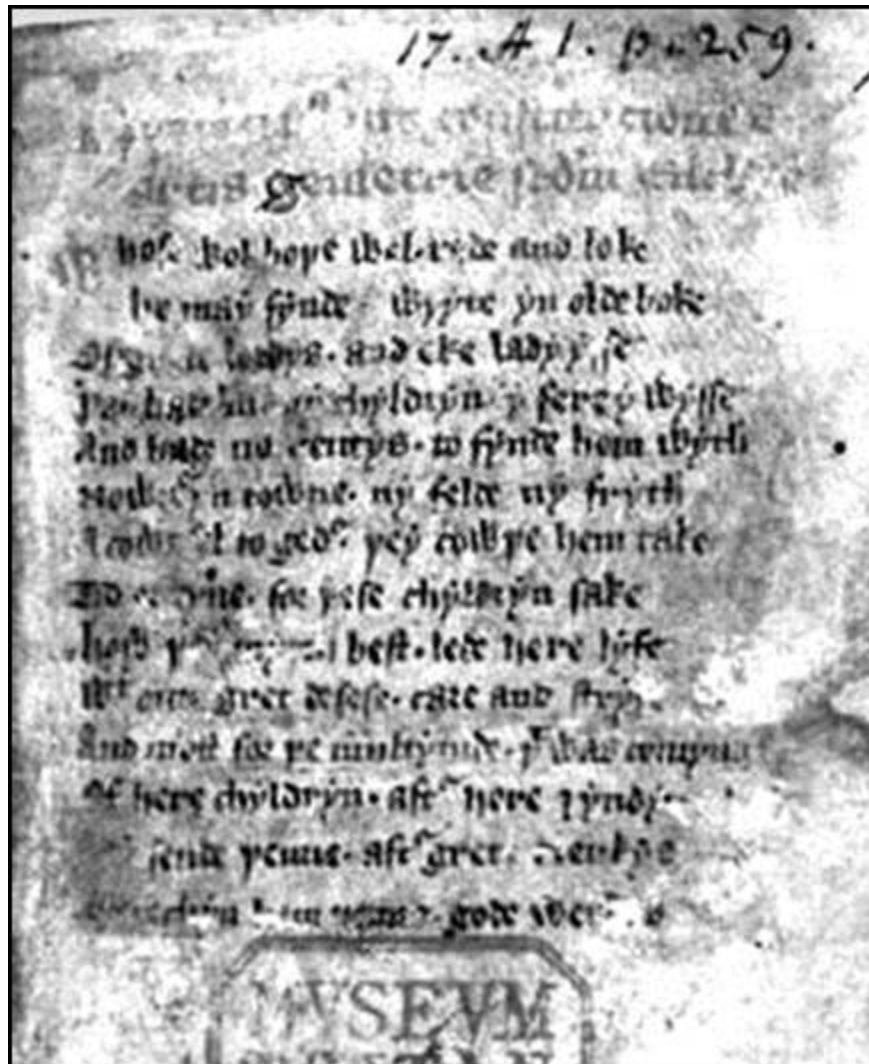 17. A 1. p. 259.
constituciones
artis gemetrie
Whose wol boþe wel rede and loke
he may fynde wryte yn olde boke
Of grete lordys. and eke ladyysse
þat hade mony chyldryn y fere y wysse
And hade no rentys. to fynde hem wyth
Nowþer yn towne. ny felde ny fryth
A cownsel togeder þey cowþe hem take
To ordeyne. for þese chyldryn sake
how þey best. lede here lyfe
Wt oute gret desese. care and stryfe
And most for þe multytude. þt was comynge
Of here chyldryn. after here ȝyndynge
sende þenne. after grete clerkys
techyn hem þenne. gode werkys
MVSEVM